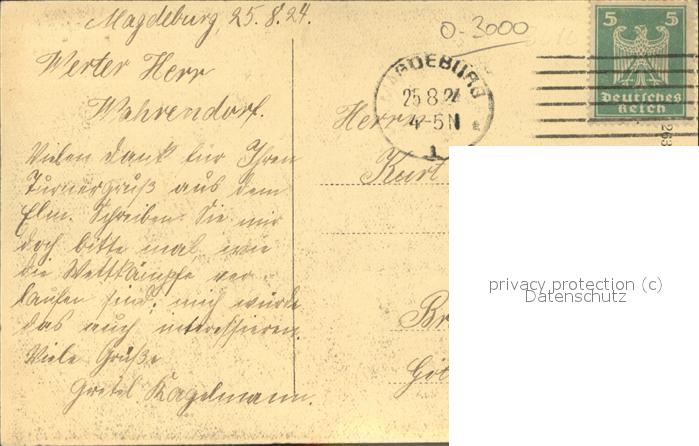 Magdeburg, 25.8.24.
0-3000
Werter Herr
Wahrendorf.
Vielen Dank für Ihren
Turnergruß aus dem
Elm. Schreiben Sie mir
doch bitte mal, wie
die Wettkämpfe ver-
laufen sind; mich würde
das auch interessieren.
Viele Grüße
Gretel Kagelmann.
MAGDEBURG
25.8.24
4-5N
1
5 5
Deutsches
Reich
263
Herrn
Kurt
Br
Göt
privacy protection (c)
Datenschutz